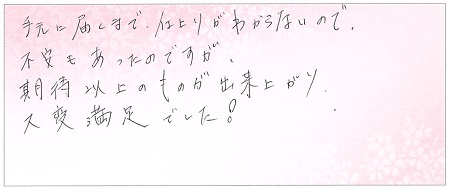 手元に届くまで、仕上りがわからないので、
不安もあったのですが、
期待以上のものが出来上がり、
大変満足でした!